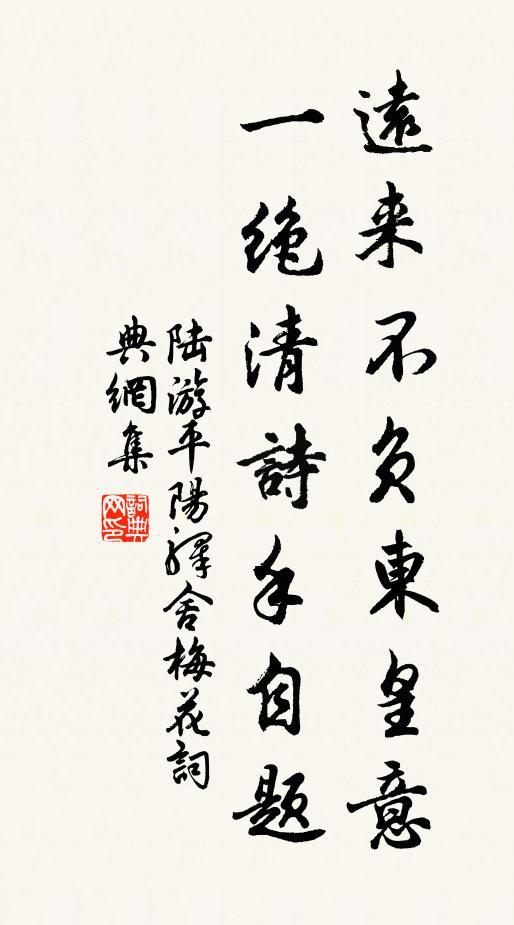 遠来不負東皇意
一絶清詩手自題
陸游平陽驛舍梅花詞
典網集
詞典網印